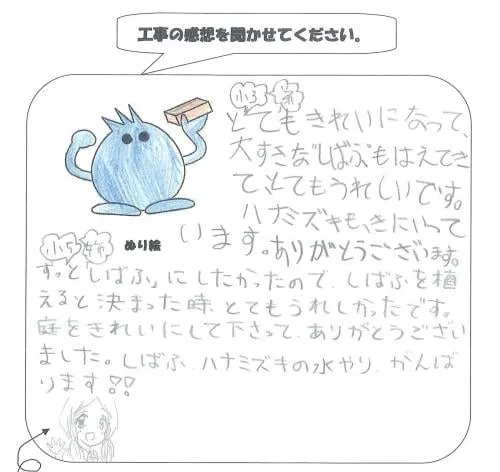 工事の感想を聞かせてください。
小3 弟
とてもきれいになって、
大すきな「しばふ」もはえてき
て、とてもうれしいです。
ハナミズキも、きにいって
います。ありがとうございます。
ぬり絵
小5 姉
ずっと「しばふ」にしたかったので、しばふを植
えると決まった時、とてもうれしかったです。
庭をきれいにして下さって、ありがとうござい
ました。しばふ、ハナミズキの水やり、がんば
ります!!